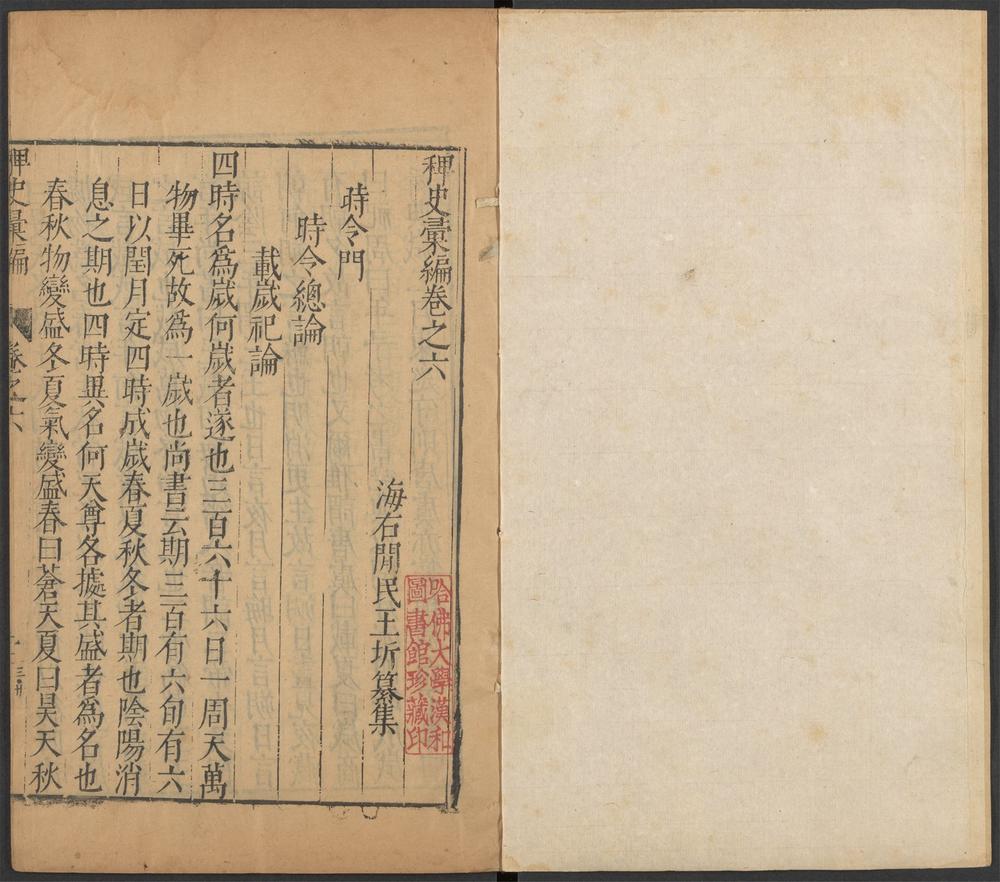 稗史彙編卷之六
海右閒民王圻纂集
哈佛大學漢和
圖書館珍藏印
時令門
時令總論
載歲祀論
四時名爲歲何歲者遂也三百六十六日一周天萬
物畢死故爲一歲也尚書云期三百有六旬有六
日以閏月定四時成歲春夏秋冬者期也陰陽消
息之期也四時異名何天尊各據其盛者爲名也
春秋物變盛冬夏氣變盛春曰蒼天夏曰昊天秋
稗史彙編
卷之六